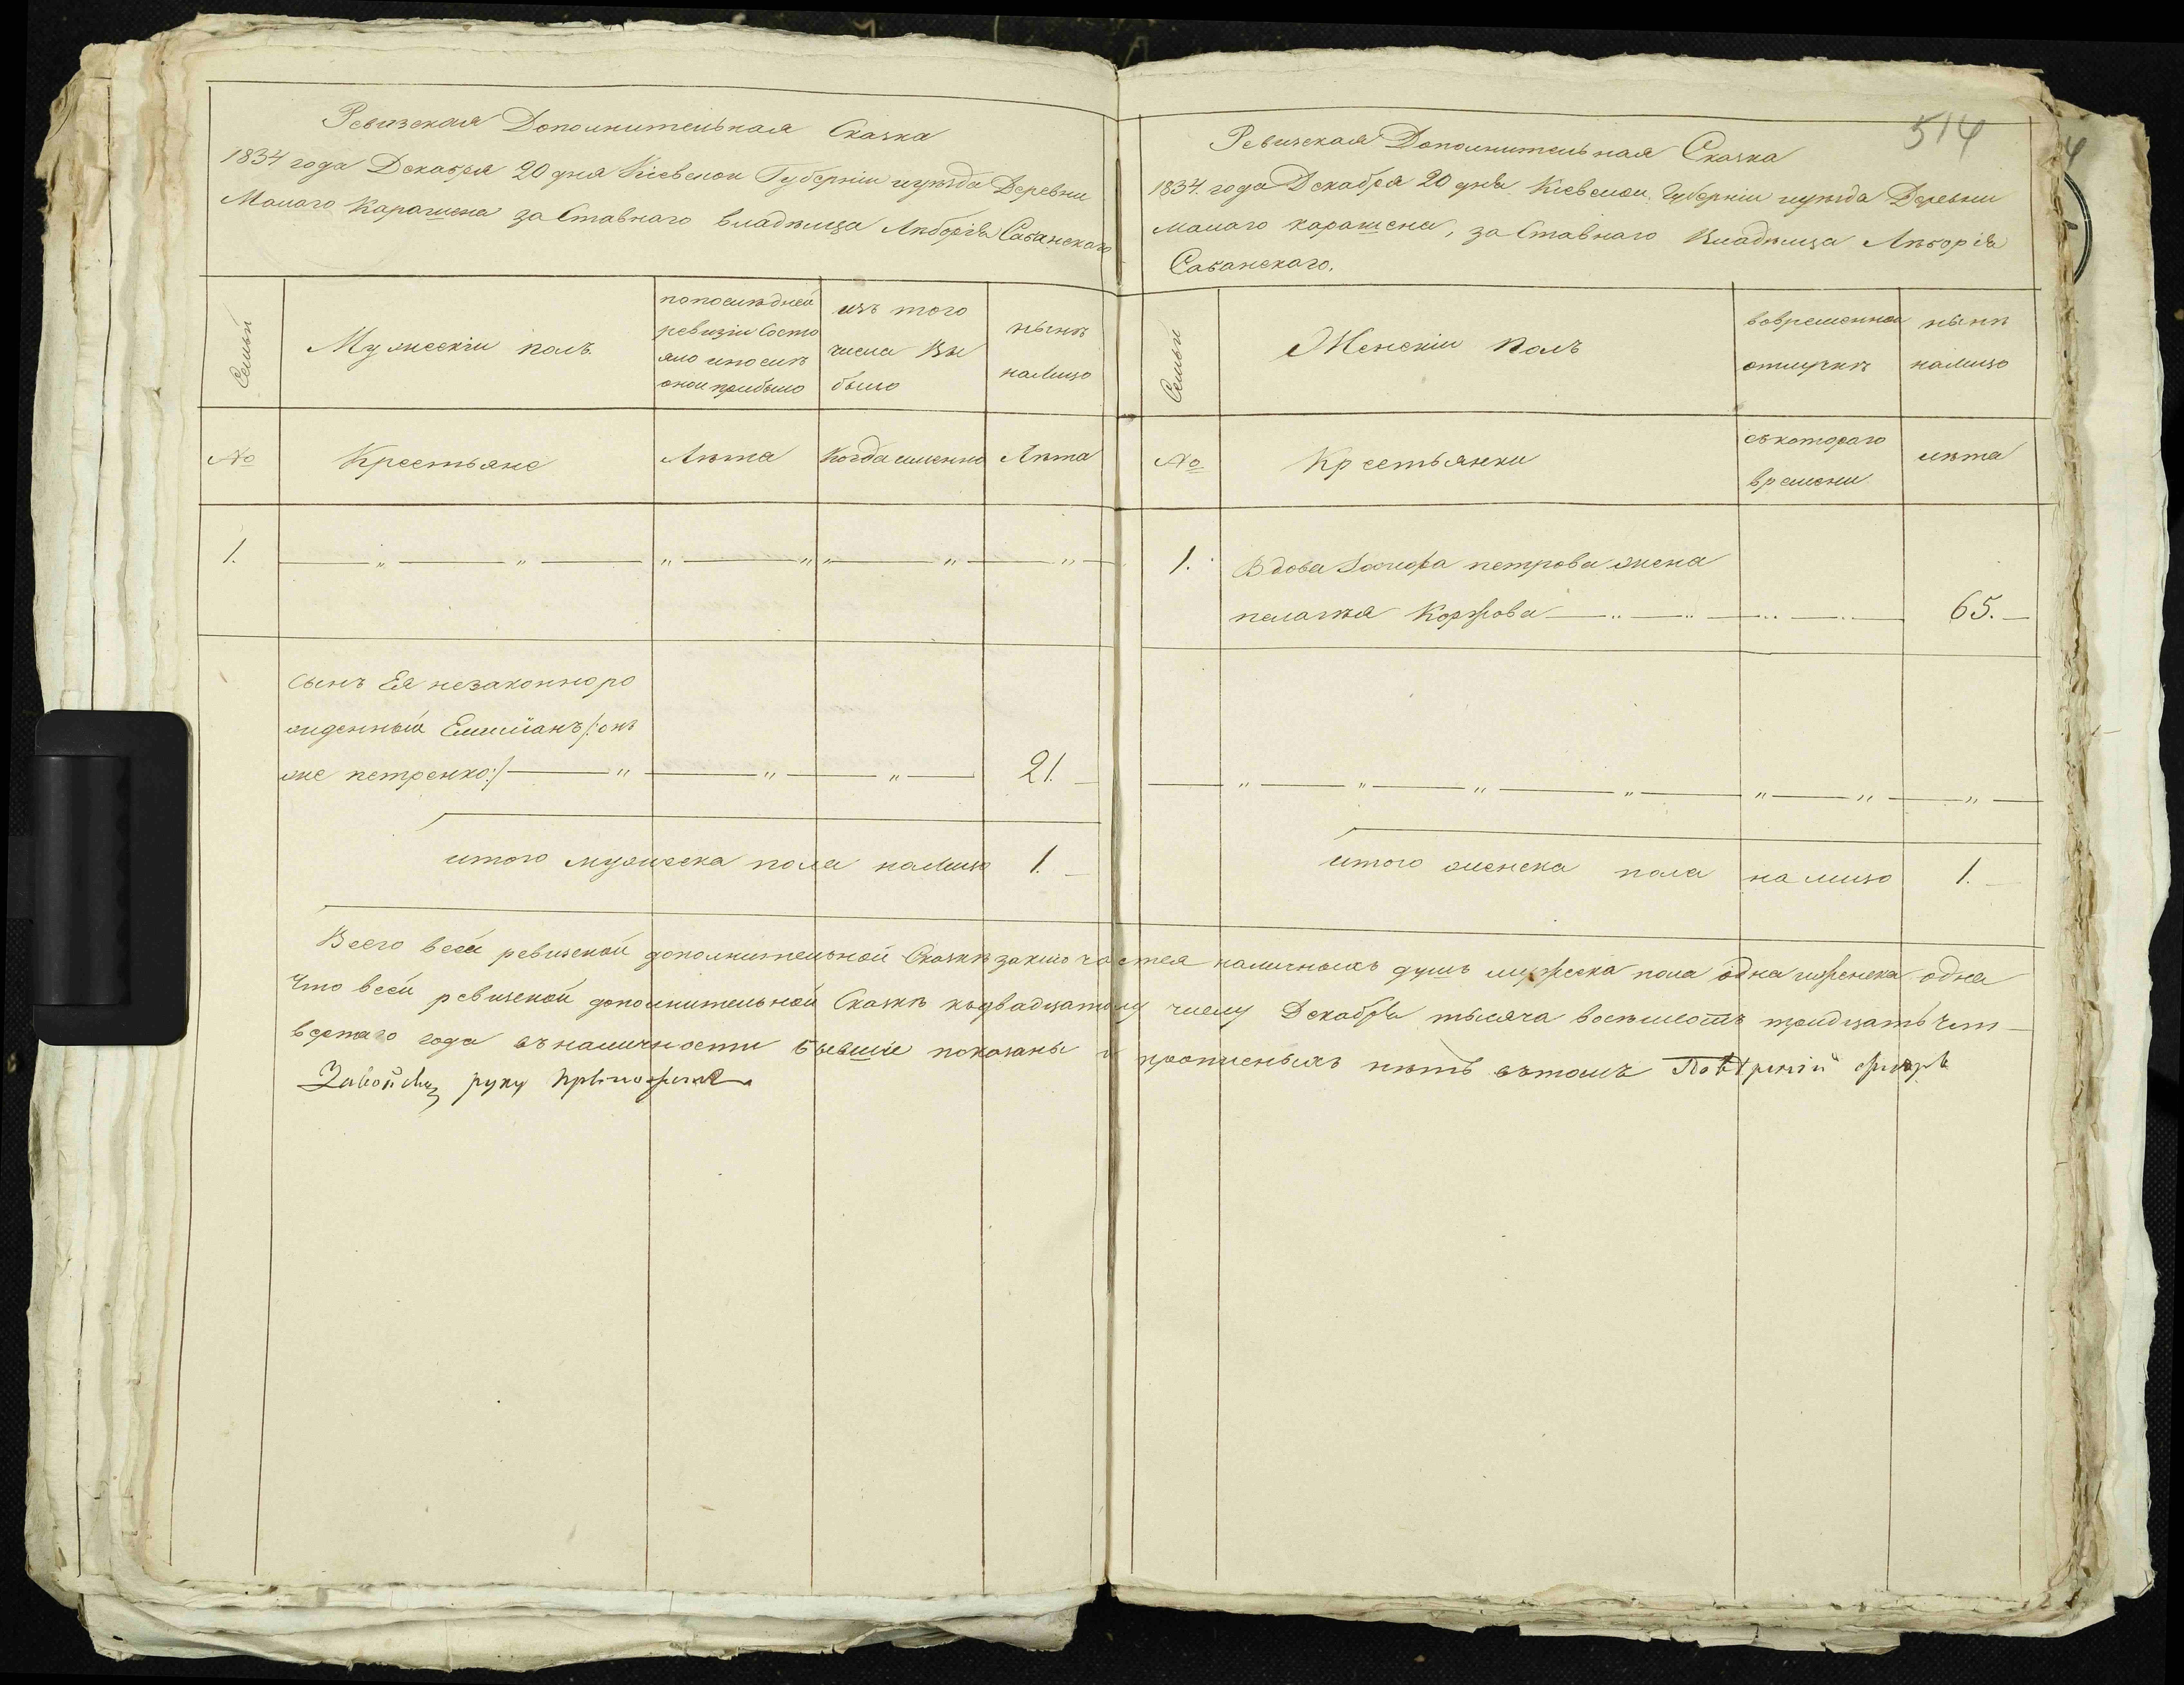 Ревизская Дополнительная Сказка
1834 года Декабря 20 дня Кіевской Губерніи иуѣзда Деревни
Малаго Каратена заСтавнаго владѣльца Сабанскаго
Семьи
Мужескій полъ
попослѣдней
ревизіи Состо
яло ипослѣ
оной прибыло
изъ того
числа Вы
было
нынѣ
налицо
№
Крестьяне
Лѣта
Когда именно
Лѣта
1.
сынъ Ея незаконноро
жденный Емиліанъ /:онъ
же петренко:/ 21.
итого мужеска пола налицо 1.
514
Ревизская Дополнительная Сказка
1834. года Декабря 20 дня Кіевской Губерніи иуѣзда Деревни
малаго каратена, заСтавнаго Владѣльца
Сабанскаго.
Семьи
Женскій Полъ
вовременной
отлучкѣ
нынѣ
налицо
№
Крестьянки
съкотораго
времени
лѣта
1. Вдова петрова жена
пелагія Коржова 65.
итого женска пола на лицо 1.
Всего всей ревизской дополнительной Сказкѣ заключается наличныхъ душъ мужеска пола одна иженска одна
Что всей ревизской дополнительной Сказкѣ кодвадцатому числу Декабря тысяча восемьсотъ тридцать чет-
вертаго года въналичности бывшіе показаны и прописныхъ нѣтъ вътомъ
руку приложилъ